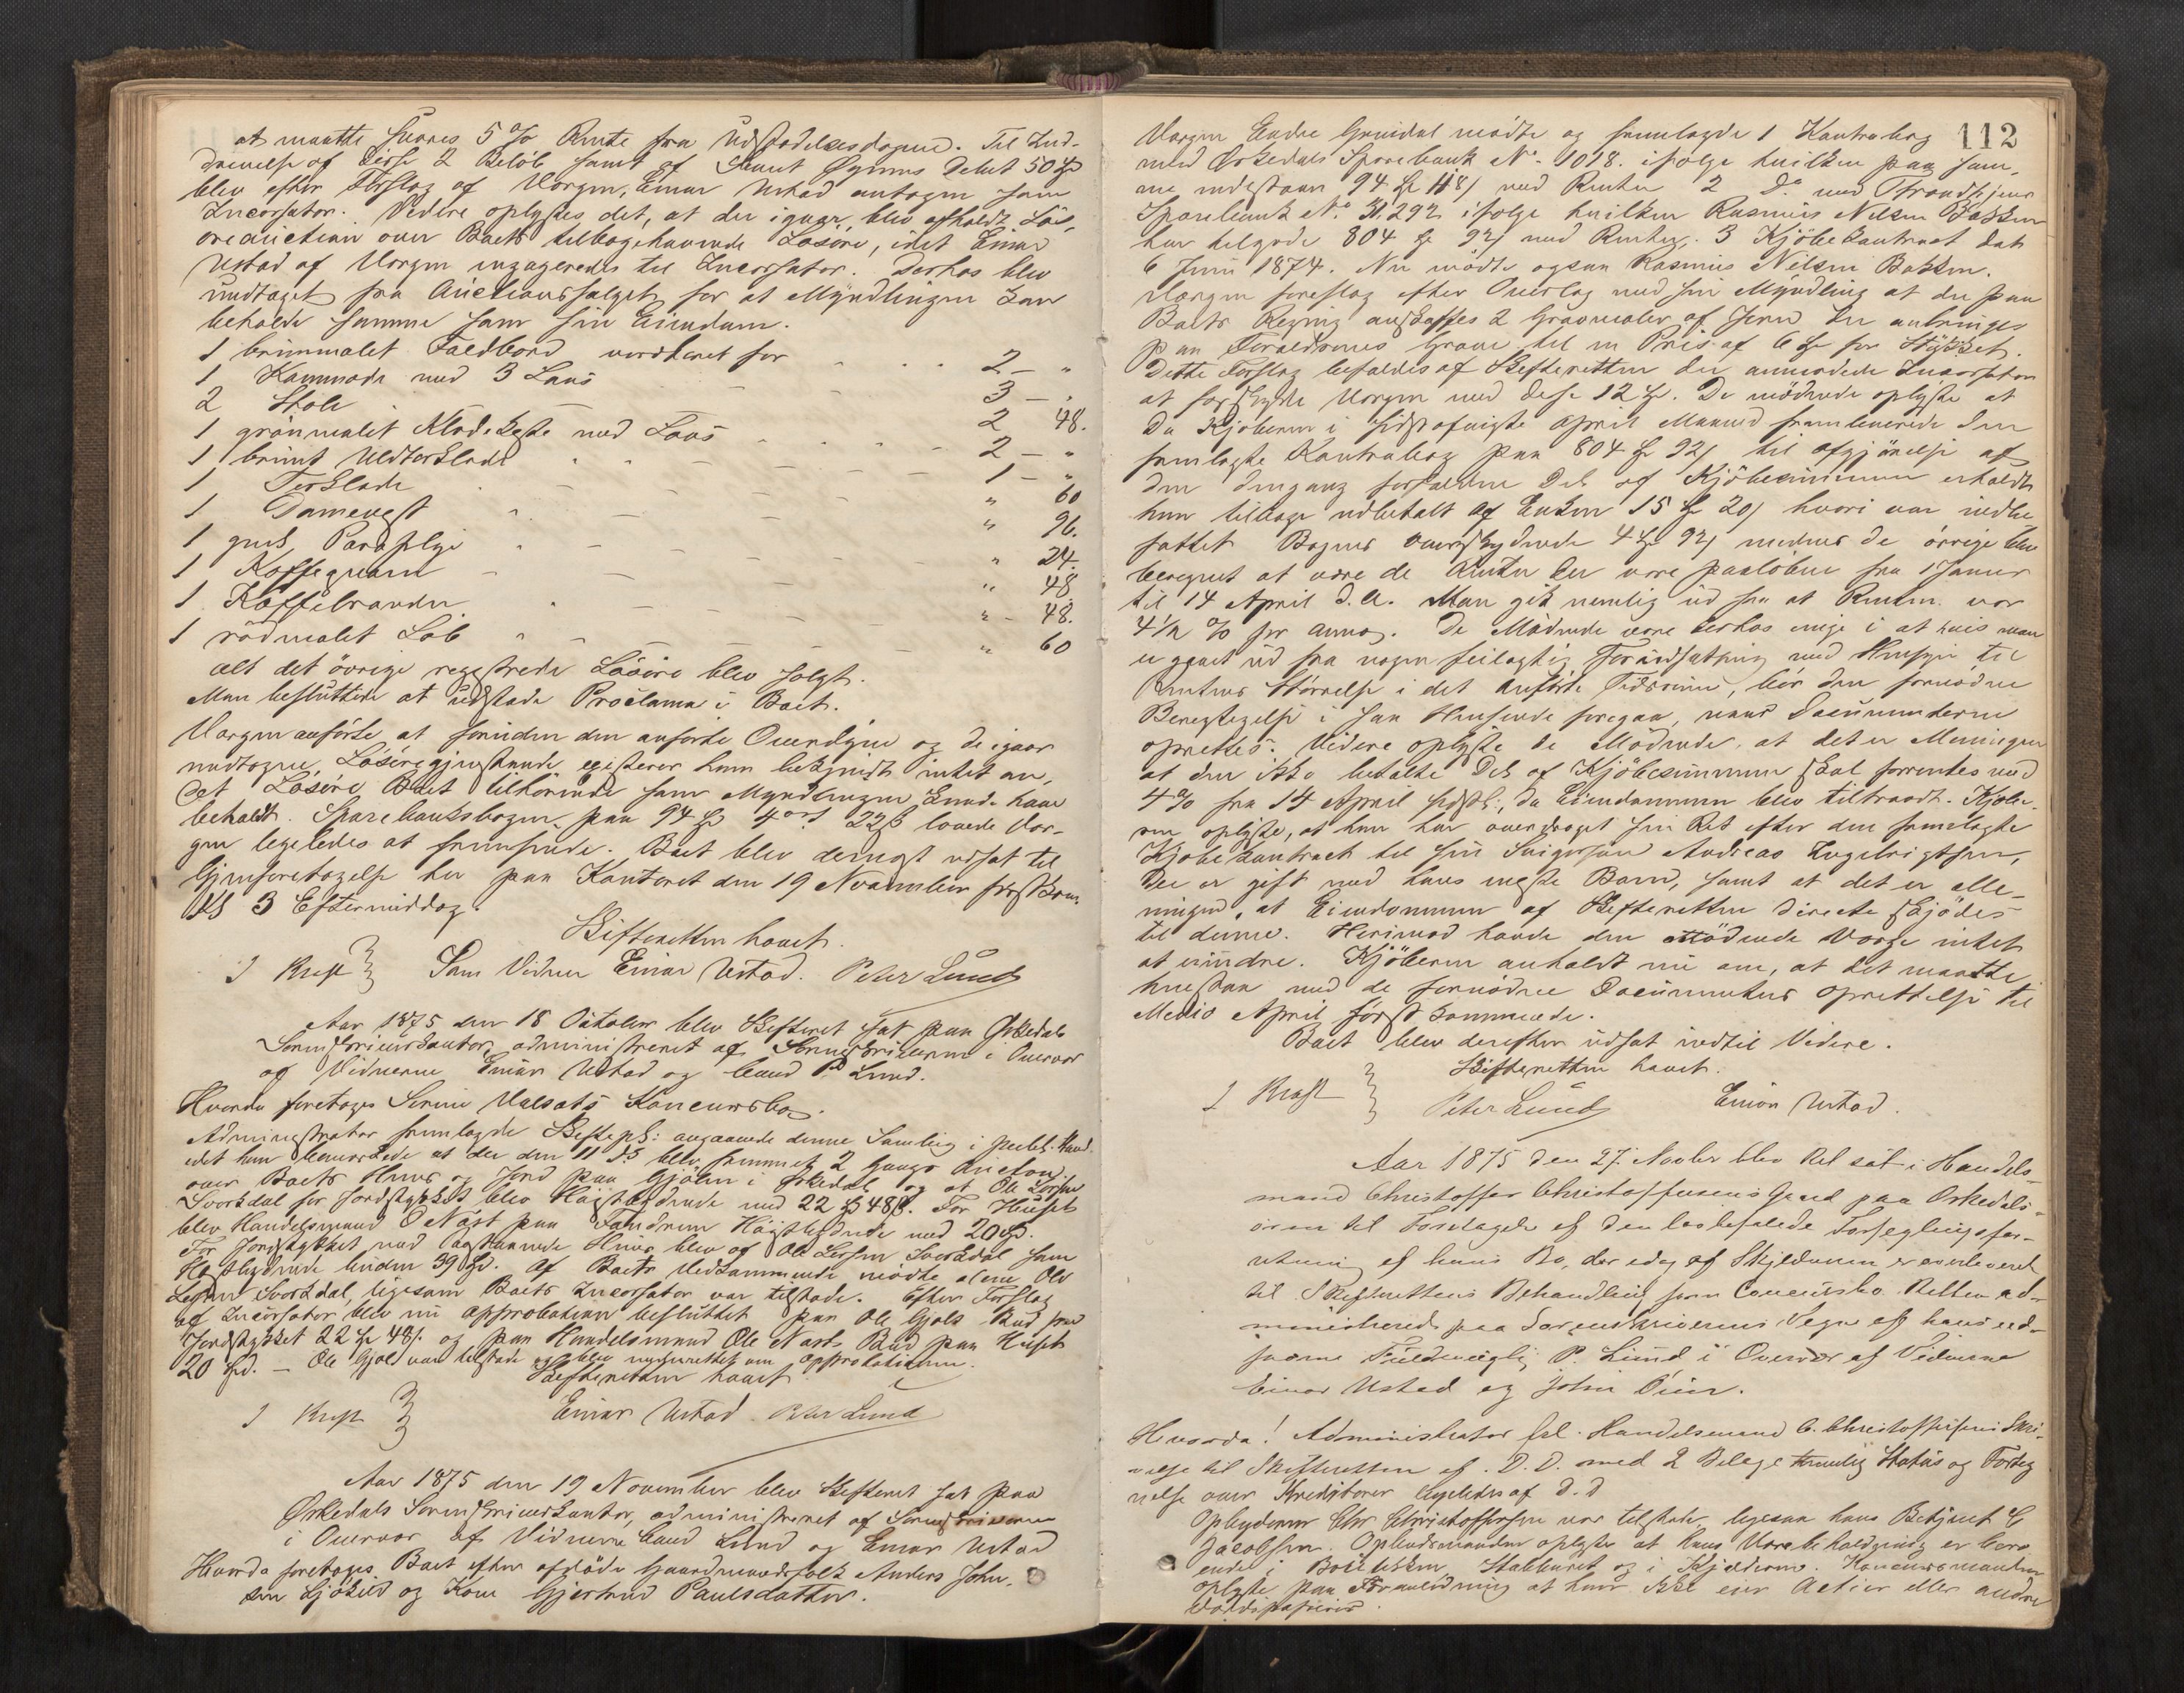 at maatte svares 5% Rente fra Udstedelsesdagene. Til Ind-
drivelse af disse 2 Beløb samt af Øyens Debet 50
blev efter Forslag af Vorgen, Einar Ustad antagen som
Incassator. Videre oplystes det, at der igaar blev afholdt Løs-
øreauction over Boets tilbagehavende Løsøre, idet Einar
Ustad af Vorgen engageredes til Incassator. Derhos blev
undtaget fra Auctionssalget for at Myndlingen kan
beholde samme som sin Eiendom.
1 brunmalet Foldbord vurderet for 2 — "
1 Kommode med 3 Laas 3 — "
2 Stole 2 48.
1 grønmalet Klædekiste med Laas 2 — "
1 brunt Uldtørklæde 1 — "
1 Tørklæde " 60
1 Damevest " 96.
1 Paraplyi " 24.
1 Kaffeqværn " 48
1 Kaffebrænder " 48.
1 rødmalet Løb " 60
alt det øvrige registrerede Løsøre blev solgt.
Man besluttede at udstede Proclama i Boet.
Vorgen anførte at foruden den anførte og de igaar
undtagne Løsøregjenstande existerer ham bekjendt intet an-
det Løsøre Boet tilhørende som Myndlingen kunde have
beholdt. Sparebanksbogen paa 94 4 ort 22 lovede Vor-
gen ligeledes at fremsende. Boet blev dernæst udsat til
Gjenforetagelse her paa Kontoret den 19 November førstkom.
Kl 3 Eftermiddag.
Skifteretten hævet.
J Kraft Som Vidner Einar Ustad. Peter Lund
Aar 1875 den 18 October blev Skifteret sat paa Ørkedals
Sorenskriverkontor, administreret af Sorenskriveren i Overvær
af Vidnerne Einar Ustad og Canud P. Lund.
Hvorda foretoges Concursbo.
Administrator fremlagde Skiftepk: angaaende denne Samling i
idet han bemærkede at der den 11 ds blev fremmet 2 Gangs Auction
over Boets Huus og Jord paa Gjølme i Ørkedal og at Ole Larsen
Svorkdal for Jordstykket blev Høistbydende med 22 48. For Huset
blev Handelsmand O Næst paa Høistbydende med 20
For Jordstykket med Huus blev af Ole Larsen Svorkdal som
Høistbydende buden 39. Af Boets Vedkommende mødte alene Ole
Larsen Svorkdal, ligesom Boets Incassator var tilstede. Efter Forslag
af Incassator blev nu Approbation besluttet paa Ole Gjøls Bud paa
Jordstykket 22 48 og paa Handelsmand Ole Næsts Bud paa Huset
20 — Ole Gjøl var tilstede og blev underrettet om Approbationen.
Skifteretten hævet
J Kraft Einar Ustad Peter Lund
Aar 1875 den 19 November blev Skifteret sat paa
Ørkedals Sorenskriverkontor, administreret af Sorenskriveren
i Overvær af Vidnerne Canud Lund og Einar Ustad
Hvorda foretoges Boet efter afdøde Gaardmandsfolk Anders John-
sen og Kone Gjertrud Paulsdatter.
112
Vorgen Endre mødte og fremlagde 1 Kontrabog
med Ørkedals Sparebank No. 1018. ifølge hvilken paa sam-
me indestaar 94 med Renter 2 do med Trondhjems
Sparebank No 31.292 ifølge hvilken Rasmus Nilsen Bakken
har tilgode 804 92 med Renter, 3 Kjøbekontract dat
6 Juni 1874. Nu mødte ogsaa Rasmus Nilsen Bakken.
Vorgen foreslog efter Overlæg med sin Myndling at der paa
Boets Regning anskaffes 2 Gravmæler af Jern der anbringes
paa Forældrenes Grave til en Pris af 6 for Stykket.
Dette Forslag bifaldtes af Skifteretten der anmodede Incassator
at forstrække Vorgen med disse 12. De mødende oplyste at
da Kjøberen i sidstafvigte April Maaned fremleverede den
fremlagte Kontrabog paa 804 92 til Afgjørelse af
den dengang forfaldne Del af Kjøbesummen erholdt
han tilbage udbetalt af Enken 15 20 hvori var indbe-
fattet Bogens overskydende 4 92 medens de øvrige blev
beregnet at være de Renter der vare paaløbne fra 1 Januar
til 14 April d.A. Man gik nemlig ud fra at Renten var
4½ % pr anno. De Mødende vare derhos enige i at hvis man
er gaaet ud fra nogen feilagtig Forudsætning med Hensyn til
Rentens Størrelse i det anførte Tidsrum, bør den fornødne
Berigtigelse i saa Henseende foregaa, naar Documenterne
oprettes. Videre oplyste de Mødende, at det er Meningen
at den ikke betalte Del af Kjøbesummen skal forrentes med
4% fra 14 April sidstl., da Eiendommen blev tiltraadt. Kjøbe-
ren oplyste, at han har overdraget sin Ret efter den fremlagte
Kjøbekontract til sin Svigersøn Andreas Engebrigtsen,
der er gift med hans Barn, samt at det er
meningen, at Eiendommen af Skifteretten directe skjødes
til denne. Herimod havde den Mødende Vorge intet
at erindre. Kjøberen anholdt nu om, at det maatte
henstaa med de fornødne Documenters Oprettelse til
Medio April førstkommende.
Boet blev derefter udsat indtil Videre.
Skifteretten hævet.
J Kraft Peter Lund Einar Ustad.
Aar 1875 den 27 Novbr blev Ret sat i Handels-
mand Christoffer Christoffersens Gaard paa Orkedals-
øren til Foretagelse af den forbefalede Forseglingsfor-
retning af hans Bo, der idag af Skyldneren er overleveret
til Skifterettens Behandling som Concursbo. Retten ad-
ministreredes paa Sorenskriverens Vegne af hans ed-
svorne Fuldmægtig P. Lund i Overvær af Vidnerne
Einar Ustad og John Øien.
Hvorda! Administrator frl. Handelsmand C. Christoffersens Skri-
velse til Skifteretten af D.D. med 2 Bilage nemlig Status og Forteg
nelse over Kreditorer ligeledes af d.d
Opbyderen Chr Christoffersen var tilstede, ligesaa hans Betjent G
Jacobsen. Opbudsmanden oplyste at hans Varebeholdning er bero
ende i Boutikken, Stabburet og i Kjælderne. Concursmanden
oplyste paa Foranledning at han ikke eier Actier eller andre
Værdipapirer.